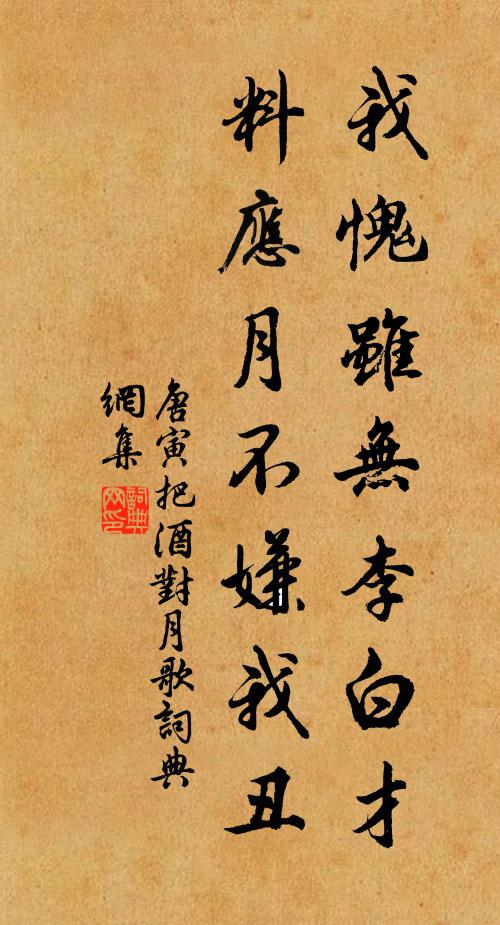 我愧雖無李白才
料應月不嫌我丑
唐寅把酒對月歌詞典
網集
詞典
网印